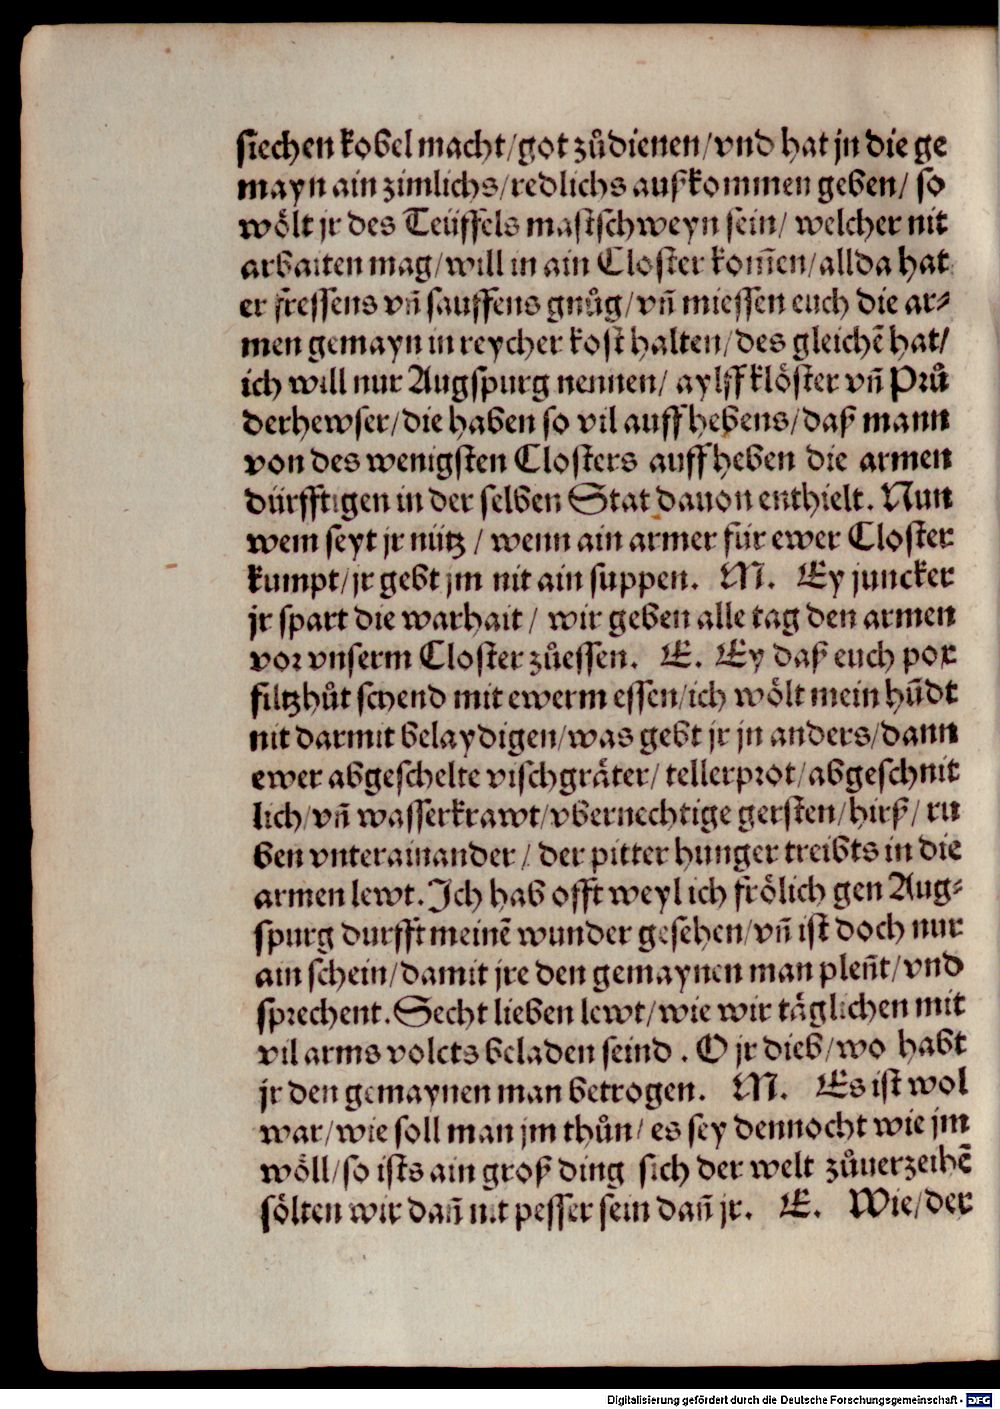 siechen kobel macht/got zůdienen/vnd hat jn die ge
mayn ain zimlichs/redlichs außkommen geben/ so
wölt jr des Teüffels mastschweyn sein/ welcher nit
arbaiten mag/will in ain Closter kom̃en/allda hat
er fressens vñ sauffens gnůg/vñ miessen euch die ar⸗
men gemayn in reycher kost halten/des gleichẽ hat/
ich will nur Augspurg nennen/ aylff klöster vñ Prů
derhewser/die haben so vil auffhebens/daß mann
von des wenigsten Closters auffheben die armen
dürfftigen in der selben Stat dauon enthielt. Nun
wem seyt jr nütz / wenn ain armer für ewer Closter
kumpt/jr gebt jm nit ain suppen. M. Ey juncker
jr spart die warhait / wir geben alle tag den armen
vor vnserm Closter zůessen. E. Ey daß euch pox
filtzhůt schend mit ewerm essen/ich wölt mein hũdt
nit darmit belaydigen/was gebt jr jn anders/dann
ewer abgeschelte vischgräter/ tellerprot/abgeschnit
lich/vñ wasserkrawt/vbernechtige gersten/hirß/ ru
ben vnterainander / der pitter hunger treibts in die
armen lewt. Ich hab offt weyl ich frölich gen Aug⸗
spurg durfft meinẽ wunder gesehen/vñ ist doch nur
ain schein/damit jre den gemaynen man pleñt/vnd
sprechent. Secht lieben lewt/wie wir täglichen mit
vil arms volcts beladen seind . O jr dieb/wo habt
jr den gemaynen man betrogen. M. Es ist wol
war/wie soll man jm thůn/ es sey dennocht wie jm
wöll/so ists ain groß ding sich der welt zůuerzeihẽ
sölten wir dañ nit pesser sein dañ jr. E. Wie/der
Digitalisierung gefördert durch die Deutsche Forschungsgemeinschaft - DFG